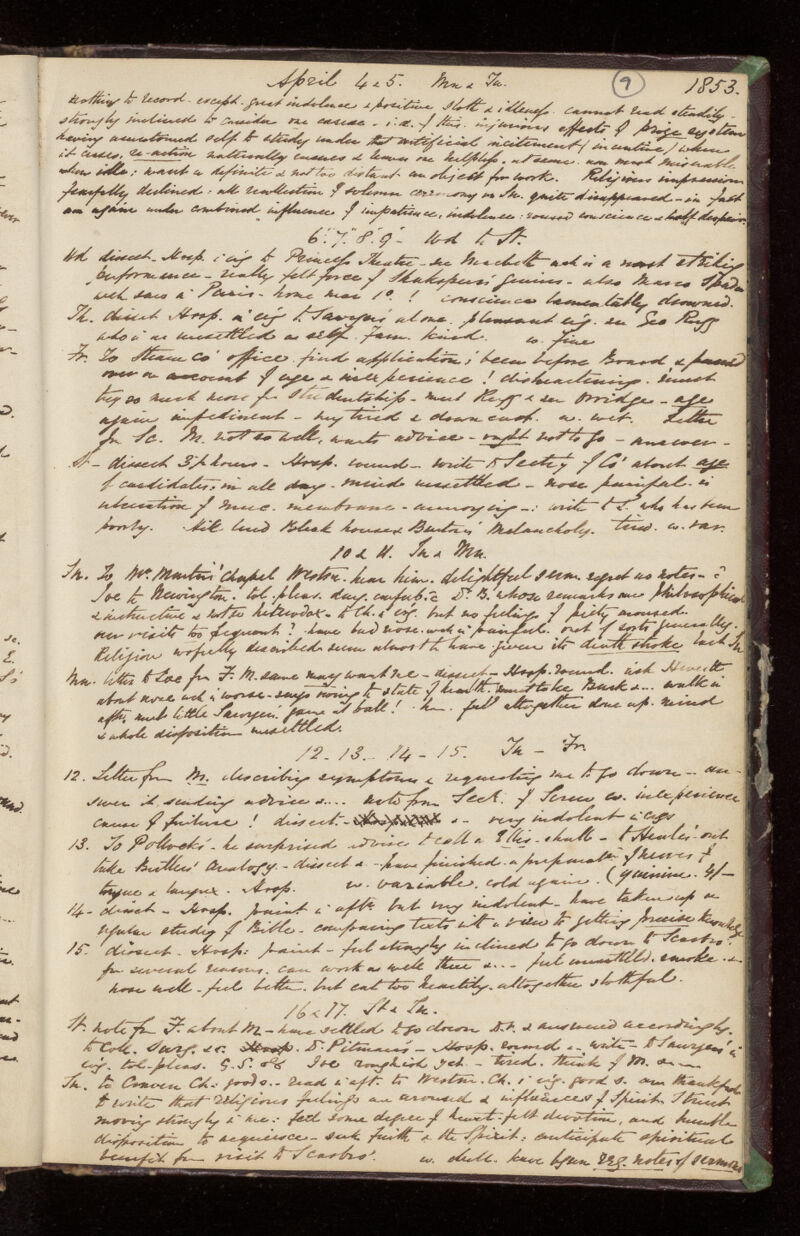 April 4 & 5. Mn & Tu. 9 1853.
nothing to record except great indolence & positive sloth & idleness. cannot read steadily -
strongly inclined to consider one cause - i.e. of this. injurious effects of prize system
having accustomed self to study under that artificial incitement (incentive) when
it ceases, re-action naturally ensues & leaves one helpless. at some. am most miserable
when idle: want a definite & not too distant an object for work. Religious impressions
fearfully declined - all recollection of solemn ceremony on Sn. quite disappeared - in fact
am again under combined influence of impatience, indolence: roused conscience & half despair.
6. 7. 8. 9 - Wd to St.
Wd dissect - Hosp. i evg to Princess Theatre - see Macbeth wch is a most striking
performance - really felt force of Shakspere's genius - also Marco Spada
wch saw in Paris - home near 1o. ! conscience lamentably drowned.
Th. dissect Hosp. i evg to Sawyers' alone. pleasant evg. see Geo Rugg
who is as unsettled as self. Fam. kind. w. fine
Fr. To Steam Co' office. find application; been before Board & passed
over on account of age & inexperience! disheartening. must
try so much more for Studentship - meet Rugg & see Orridge - age
again impediment - very tired & down cast. w. wet. Letter
fm Sc. M. not so well, wants advice - ought not to go - answer -
St - dissect 3½ hours - Hosp. round - write to Sectry of Co' about age
of candidates; in all day. mind unsettled - nose painful. is
ulceration of muc. membrane - annoying -: write to S. who has been
poorly. Bleak house & Burton's Melancholy. tired. w. var.
10 & 11. Sn & Mn.
Sn. To Mr. Martin's Chapel Westm. hear him. delightful serm. regret no notes -
Joe to Newington. tol. pleas. day. Dr. B. whose remarks are philosophical
& instructive & not so heterodox - to Ch. i evg. but no feelings of piety aroused.
are visits too frequent? have bad nose wch is painful. out of sorts generally.
Religion wofully described seem almost to have given its death stroke last Sn
Mn. letter to Joe fm F. M. same may want me - dissect - Hosp. round. ask Hewett
about nose wch is worse - says owing to state of health. must take Bark &... walk in
aftn. meet little Sawyers' game at ball! hm. full altogether done up. mind
& whole disposition unsettled.
12. 13. 14 - 15. Tu - Fr.
12. Letter from M. describing symptoms & requesting me to go down - an-
swer it sending advice &... note from Sect. of Screw Co. inexperience
cause of failure! dissect - &- very indolent i evg
13. To Pollock's - he surprised advises to call on Ellis. shall - to Heale's - out
take Butler's Analogy - dissect & - have finished a preparatn. of nerves of
tongue & larynx. Hosp. w. variable, cold again. (quinine. 4/-
14 - dissect - Hosp. paint i aftn. but very indolent - have taken up a
regular study of Bible - comparing texts with a view to getting precise knowledge
15. dissect - Hosp: paint - feel strongly inclined to go down to Scarbro'.
for several reasons. can work as well there &... feel unsettled. smoke &
nose well - feel better. but eat too heartily. altogether slothful.
16 & 17. St & Sn.
St. note fm F. about M - have settled to go down D.V. & answered accordingly.
to Coll. Surg. &c. Dr. Pitman's - Hosp. round &- write - to Sawyers' i
evg. tol. pleas. Joe roughish yet - tired. think of M. &—
Sn. to Ch: good s. - read i aft. to Westm. Ch. i evg. good s. am thankful
to write that religious feelings are aroused & influences of Spirit I trust
moving strongly i me: feel some degree of heart-felt devotion, and humble
disposition to acquiesce - seek faith & the Spirit: anticipate spiritual
benefit fm visit to Scarbro'. w. dull. have begun reg. notes of sermons